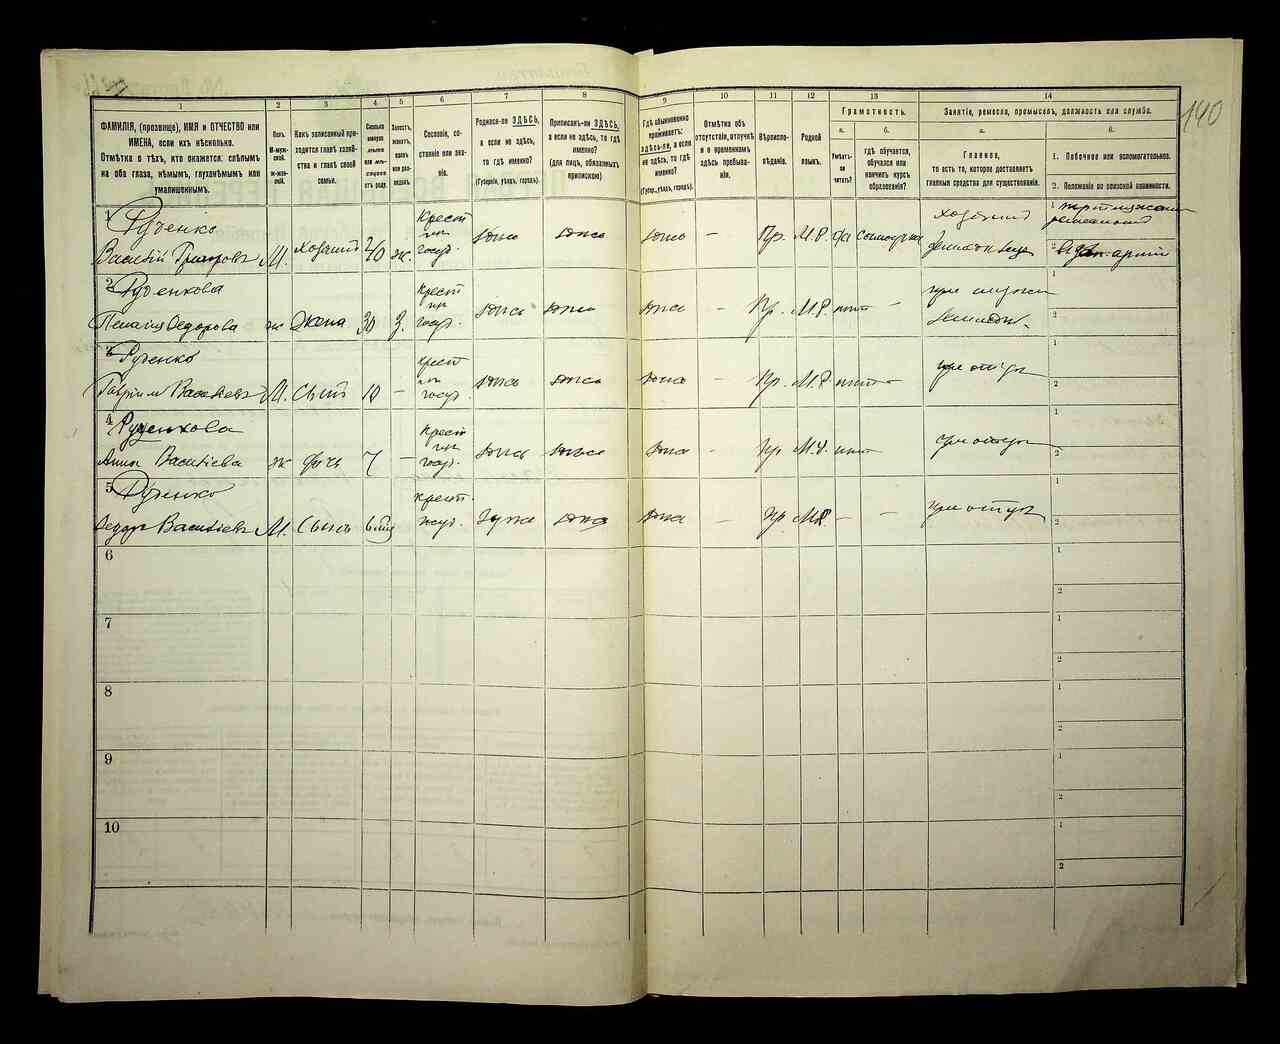 140
1
ФАМИЛІЯ, (прозвище), ИМЯ и ОТЧЕСТВО или
ИМЕНА, если ихъ нѣсколько.
Отмѣтка о тѣхъ, кто окажется: слѣпымъ
на оба глаза, нѣмымъ, глухонѣмымъ или
умалишеннымъ.
2
Полъ.
М-муж-
ской.
Ж-жен-
скій.
3
Какъ записанный при-
ходится главѣ хозяй-
ства и главѣ своей
семьи.
4
Сколько
минуло
лѣтъ
или мѣ-
сяцевъ
отъ роду.
5
Холостъ,
женатъ,
вдовъ
или раз-
веденъ.
6
Сословіе, со-
стояніе или зва-
ніе.
7
Родился-ли ЗДѢСЬ,
а если не здѣсь,
то гдѣ именно?
(Губернія, уѣздъ, городъ).
8
Приписанъ-ли ЗДѢСЬ,
а если не здѣсь, то гдѣ
именно?
(для лицъ, обязанныхъ
припискою)
9
Гдѣ обыкновенно
проживаетъ:
здѣсь-ли, а если
не здѣсь, то гдѣ
именно?
(Губер., уѣздъ, городъ).
10
Отмѣтка объ
отсутствіи, отлучкѣ
и о временномъ
здѣсь пребыва-
ніи.
11
Вѣроиспо-
вѣданіе.
12
Родной
языкъ.
13
Грамотность.
а.
Умѣетъ-
ли
читать?
б.
гдѣ обучается,
обучался или
кончилъ курсъ
образованія?
14
Занятіе, ремесло, промыселъ, должность или служба.
а.
Главное,
то есть то, которое доставляетъ
главныя средства для существованія.
б.
1. Побочное или вспомогательное.
2. Положеніе по воинской повинности.
1
Руденко
Василій Григоровъ М. Хозяинъ 40 ж.
Крест
госуд.
здѣсь здѣсь здѣсь – Пр. М.Р. да
Хозяинъ
1
2
2
Руденкова
Пелагія Федорова ж Жена 30 З.
Крест
госуд.
здѣсь здѣсь здѣсь – Пр. М.Р. нѣтъ –
при мужѣ
1
2
3
Руденко
Гаврiилъ Васильевъ М. Сынъ 10 –
Крест
госуд.
здѣсь здѣсь здѣсь – Пр. М.Р. нѣтъ –
при отцѣ
1
2
4
Руденкова
Анна Васильева ж дочь 7 –
Крест
госуд.
здѣсь здѣсь здѣсь – Пр М.Р. нѣтъ –
при отцѣ
1
2
5
Руденко
Федоръ Васильевъ М. Сынъ
крест.
госуд. здѣсь здѣсь – Пр М.Р. – –
при отцѣ
1
2
6
1
2
7
1
2
8
1
2
9
1
2
10
1
2